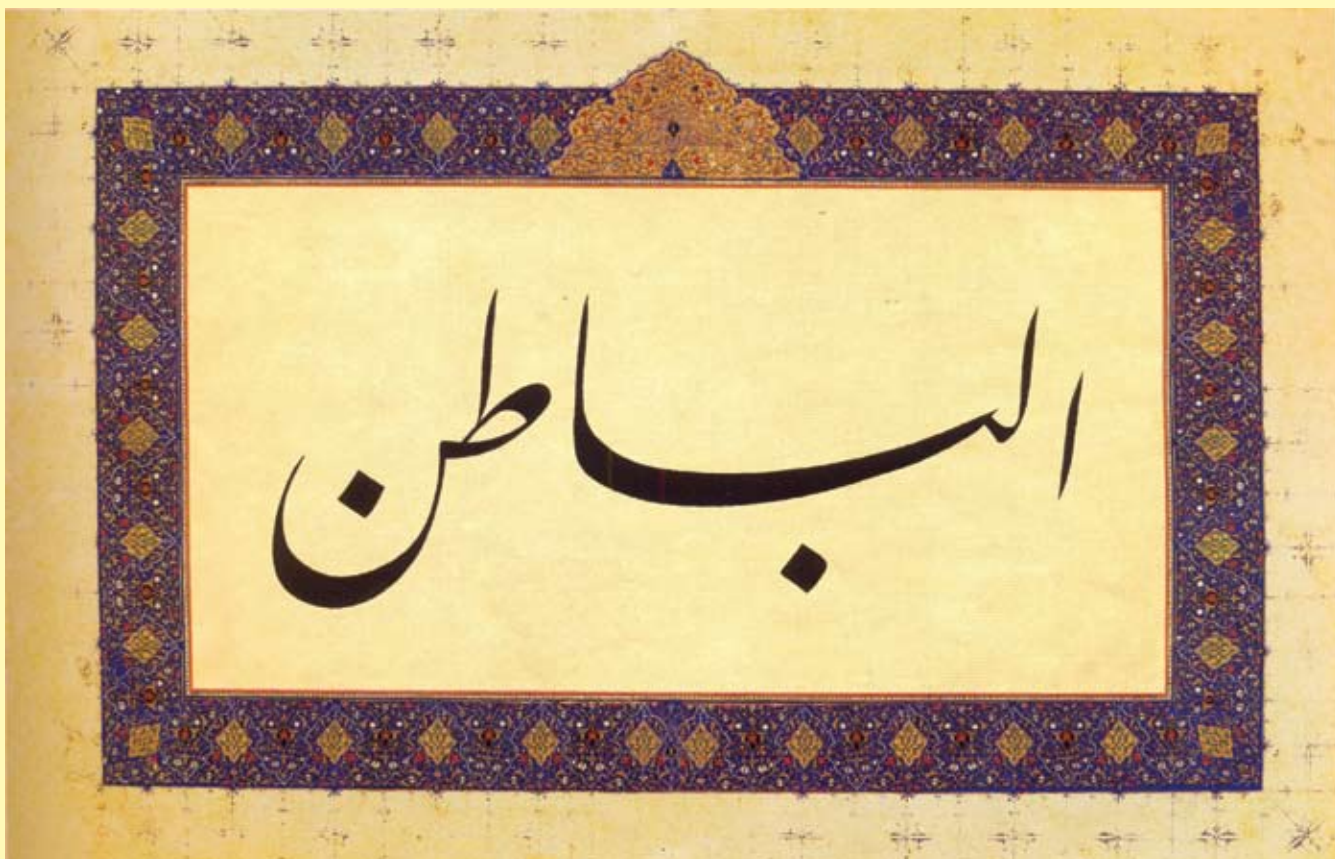 الباطن